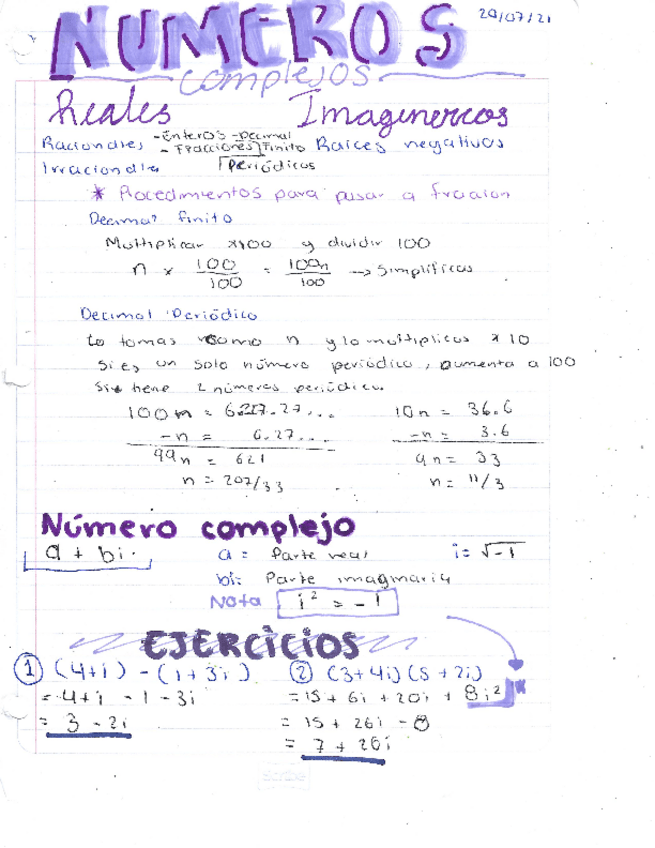 NUMEROS 20/07/21
complejos
Reales Imaginercos
Racionales -Enteros -Decimal
- Fracciones Finito Raíces negativos
Irracionales Periódicos
* Procedimientos para pasar a fracción
Decimal finito
Multiplicar x100 y dividir 100
n x 100/100 = 100n/100 → Simplificas
Decimal Periódico
Lo tomas como n y lo multiplicas x 10
Si es un solo número periódico, aumenta a 100
Si tiene 2 números periódicos
100n = 627.27... 10n = 36.6
-n = 6.27... -n = 3.6
99n = 621 9n = 33
n = 207/33 n = 11/3
Número complejo
a + bi. a = Parte real i = √-1
bi: Parte imaginaria
Nota i² = -1
EJERCICIOS
① (4+i) - (1+3i) ② (3+4i)(5+2i)
= 4+i - 1 - 3i = 15 + 6i + 20i + 8i² *
= 3 - 2i = 15 + 26i - 8
= 7 + 26i